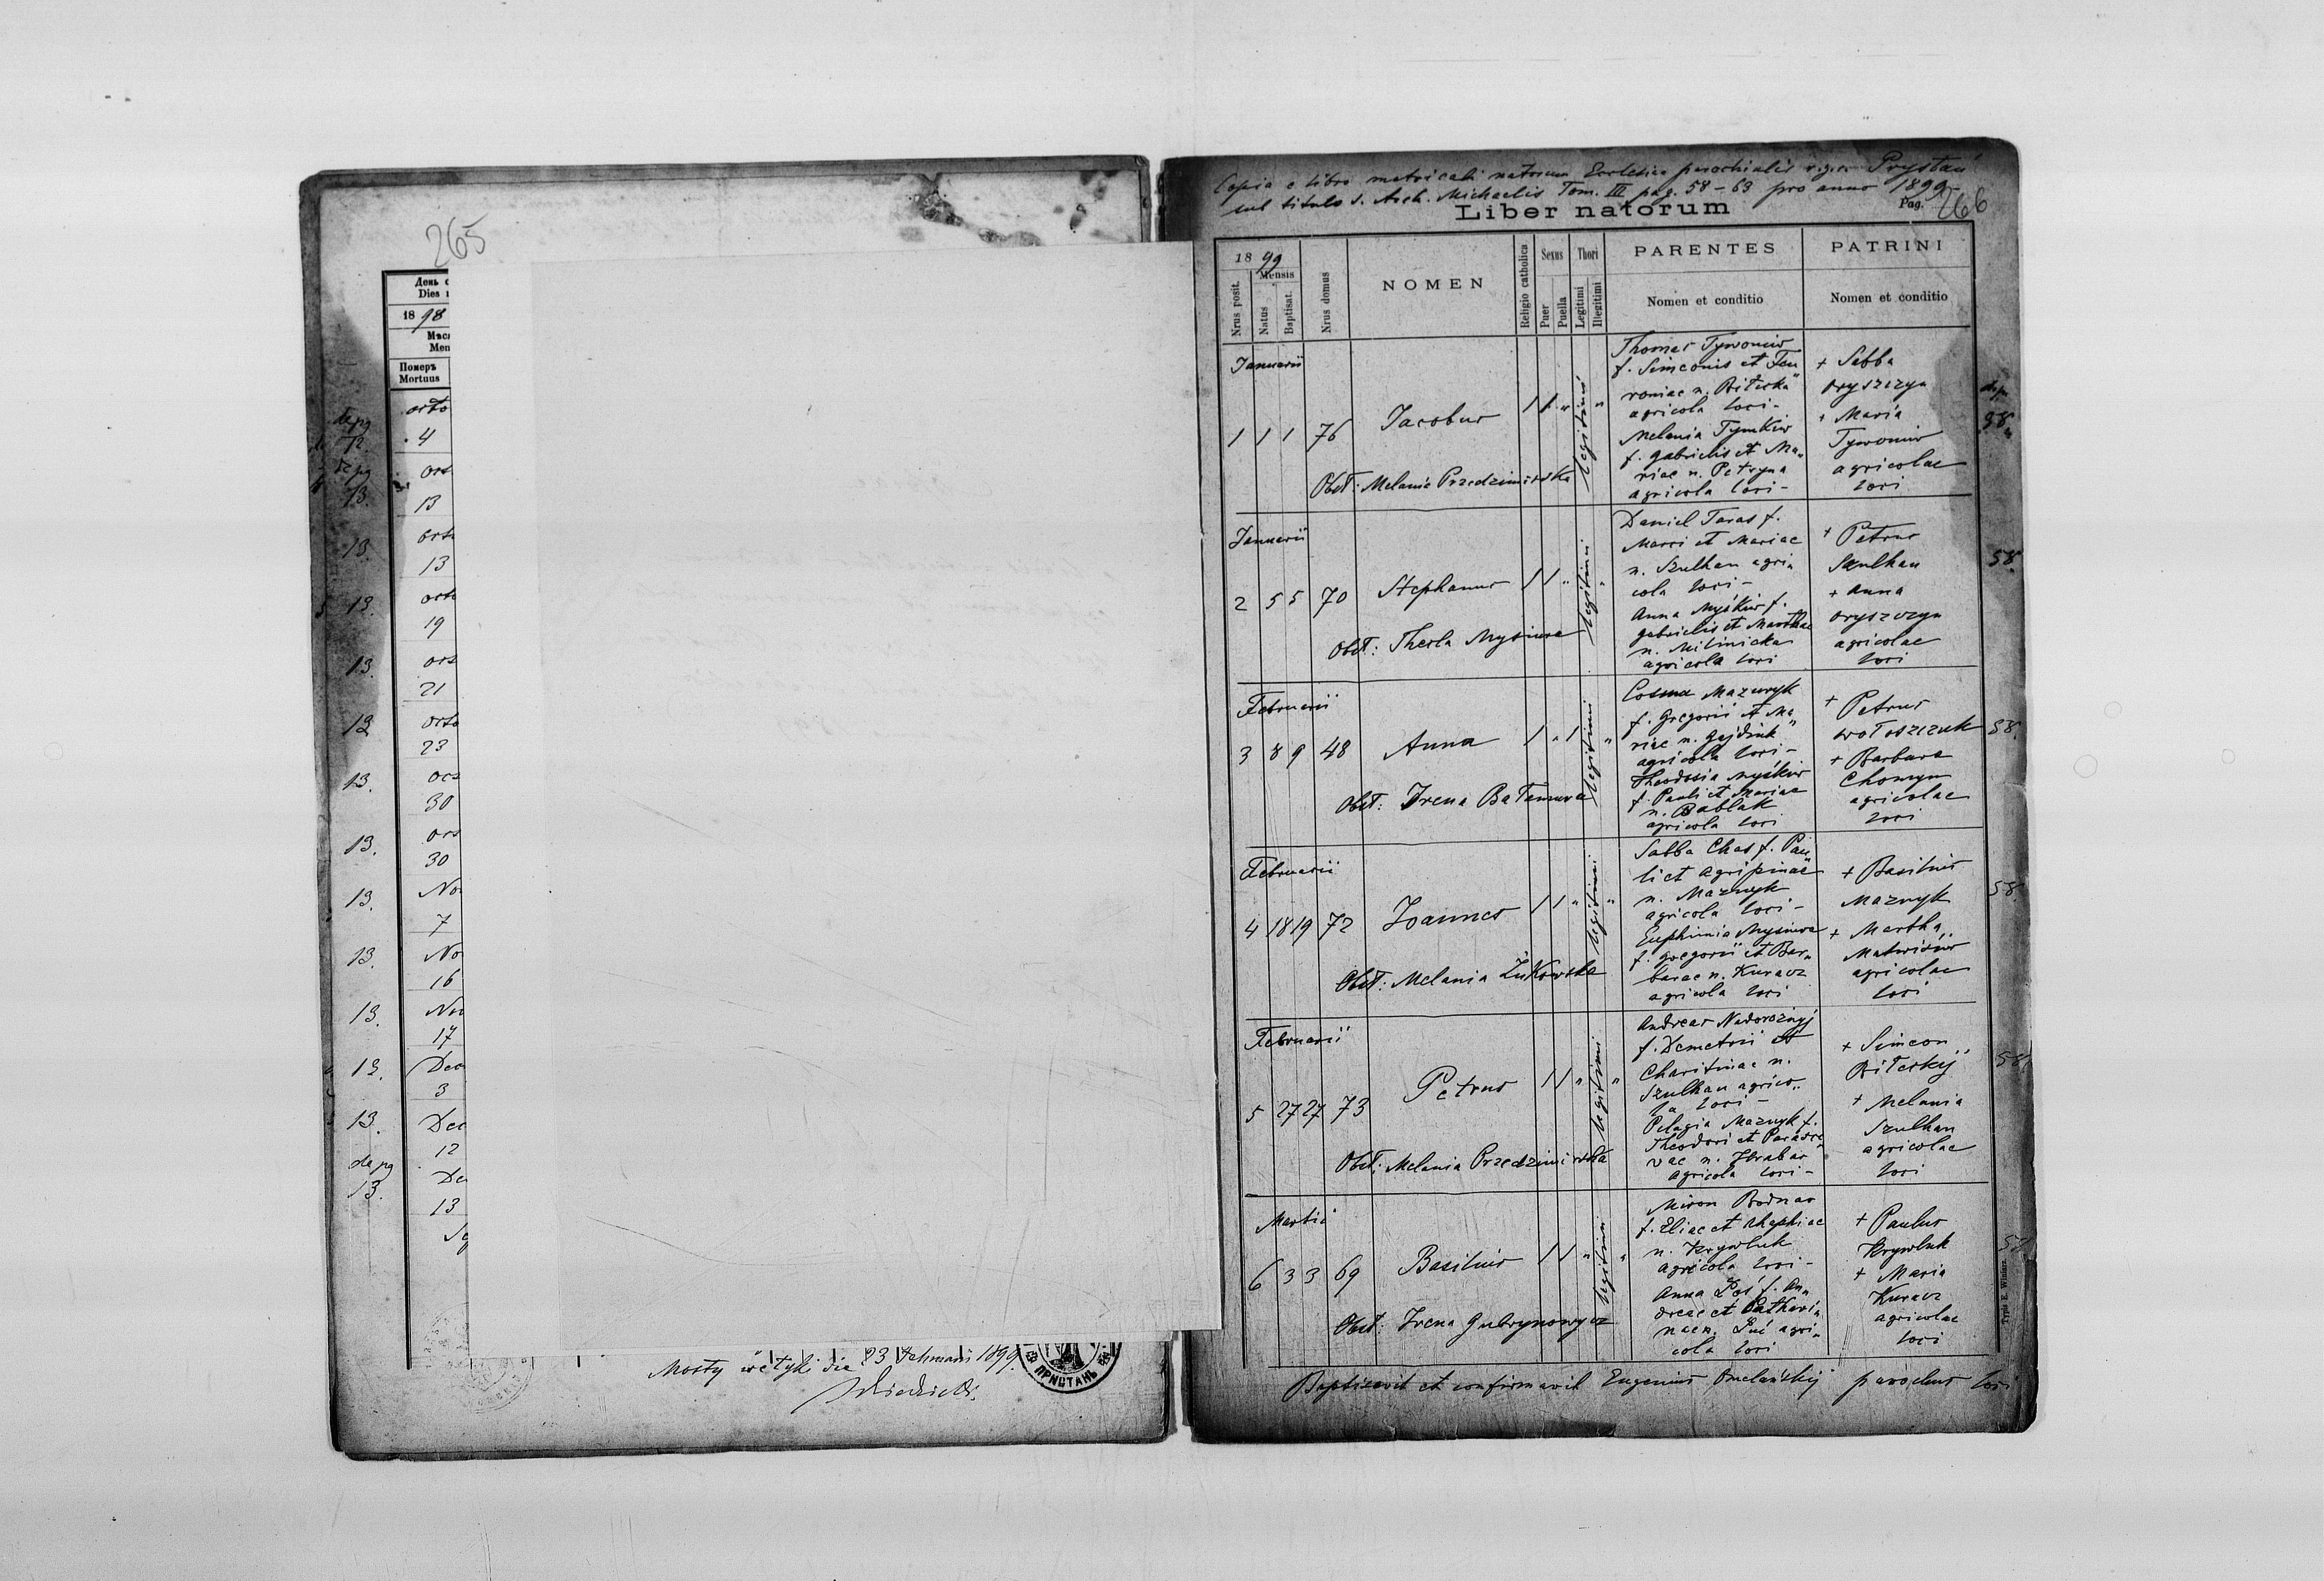 265
День с
Dies
1898
Мѣся
Men
Померъ
Mortuus
de pg
12.
octo
4
de pg
13.
13
13.
13
13.
19
13.
21
13
octo
23
13.
30
13.
30
13.
No
7
13.
No
16
13.
17
13.
Dec
3
13.
Dec
12
de pg
13.
De
13
Mosty die 23 1899.
ПРИСТАНЬ
Copia e libro matricali natorum Ecclesiae parochialis Prystań
sub titulo S. Arch. Michaelis Tom. III pag. 58-63 pro anno 1899
Liber natorum
Pag. 266
1899
Mensis
Nrus posit.
Natus
Baptisat.
Nrus domus
NOMEN
Religio catholica
Sexus
Puer
Puella
Thori
Legitimi
Illegitimi
PARENTES
Nomen et conditio
PATRINI
Nomen et conditio
Januarii
1 1 1 76 Jacobus 1 1 " legitimi "
Obst: Melania Przedzimirska
Thomas Tywoniw
f. Simeonis et Fev„
roniae n. Biłeska
agricola loci -
Melania Tymkiw
f. Gabrielis et Ma„
riae n. Petryna
agricola loci -
+ Sabba
Oryszczyn
+ Maria
Tywoniw
agricolae
loci
58
Januarii
2 5 5 70 Stephanus 1 1 " legitimi "
Obst: Thecla Mysiura
Daniel Taras f.
Marci et Mariae
n. Szulhan agri„
cola loci -
Anna Myśkiw f.
Gabrielis et Marthae
n. Milinicka
agricola loci
+ Petrus
Szulhan
+ Anna
Oryszczyn
agricolae
loci
58.
Februarii
3 8 9 48 Anna 1 " 1 legitimi "
Obst: Irena Bałamura
Cosma Mazuryk
f. Gregorii et Ma„
riae n. Gajdziuk
agricola loci -
Theodosia Myśkiw
f. Pauli et Mariae
n. Bablak
agricola loci
+ Petrus
Wołoszczuk
+ Barbara
Chomyn
agricolae
loci
58.
Februarii
4 18 19 72 Joannes 1 1 " legitimi "
Obst: Melania Żukowska
Sabba Chas f. Pau„
li et Agripinae
n. Mazuryk
agricola loci -
Euphimia Mysiura
f. Gregorii et Bar„
barae n. Kuracz
agricola loci
+ Basilius
Mazuryk
+ Martha
agricolae
loci
58.
Februarii
5 27 27 73 Petrus 1 1 " legitimi "
Obst: Melania Przedzimirska
Andreas Nadorożnyj
f. Demetrii et
Charitinae n.
Szulhan agrico„
la loci -
Pelagia Mazuryk f.
Theodori et Parasce
vae n. Hrabar
agricola loci -
+ Simeon
Biłeskyj
+ Melania
Szulhan
agricolae
loci
58
Martii
6 3 3 69 Basilius 1 1 " legitimi "
Obst: Irena Gubrynowycz
Miron Bodnar
f. Eliae et Ahaphiae
n. Krywluk
agricola loci -
Anna Łoś f. An„
dreae et Catharin„
nae n. agri„
cola loci
+ Paulus
Krywluk
+ Maria
Kuracz
agricolae
loci
Typis E. Winiarz.
Baptisavit et confirmavit Eugenius Omelański parochus loci